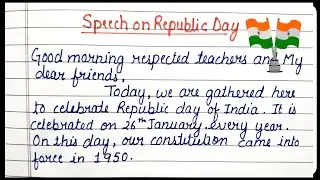 Speech on Republic Day
Good morning respected teachers an My
dear friends,
Today, we are gathered here
to celebrate Republic day of India. It is
celebrated on 26th January every year.
On this day, our constitution came into
force in 1950.